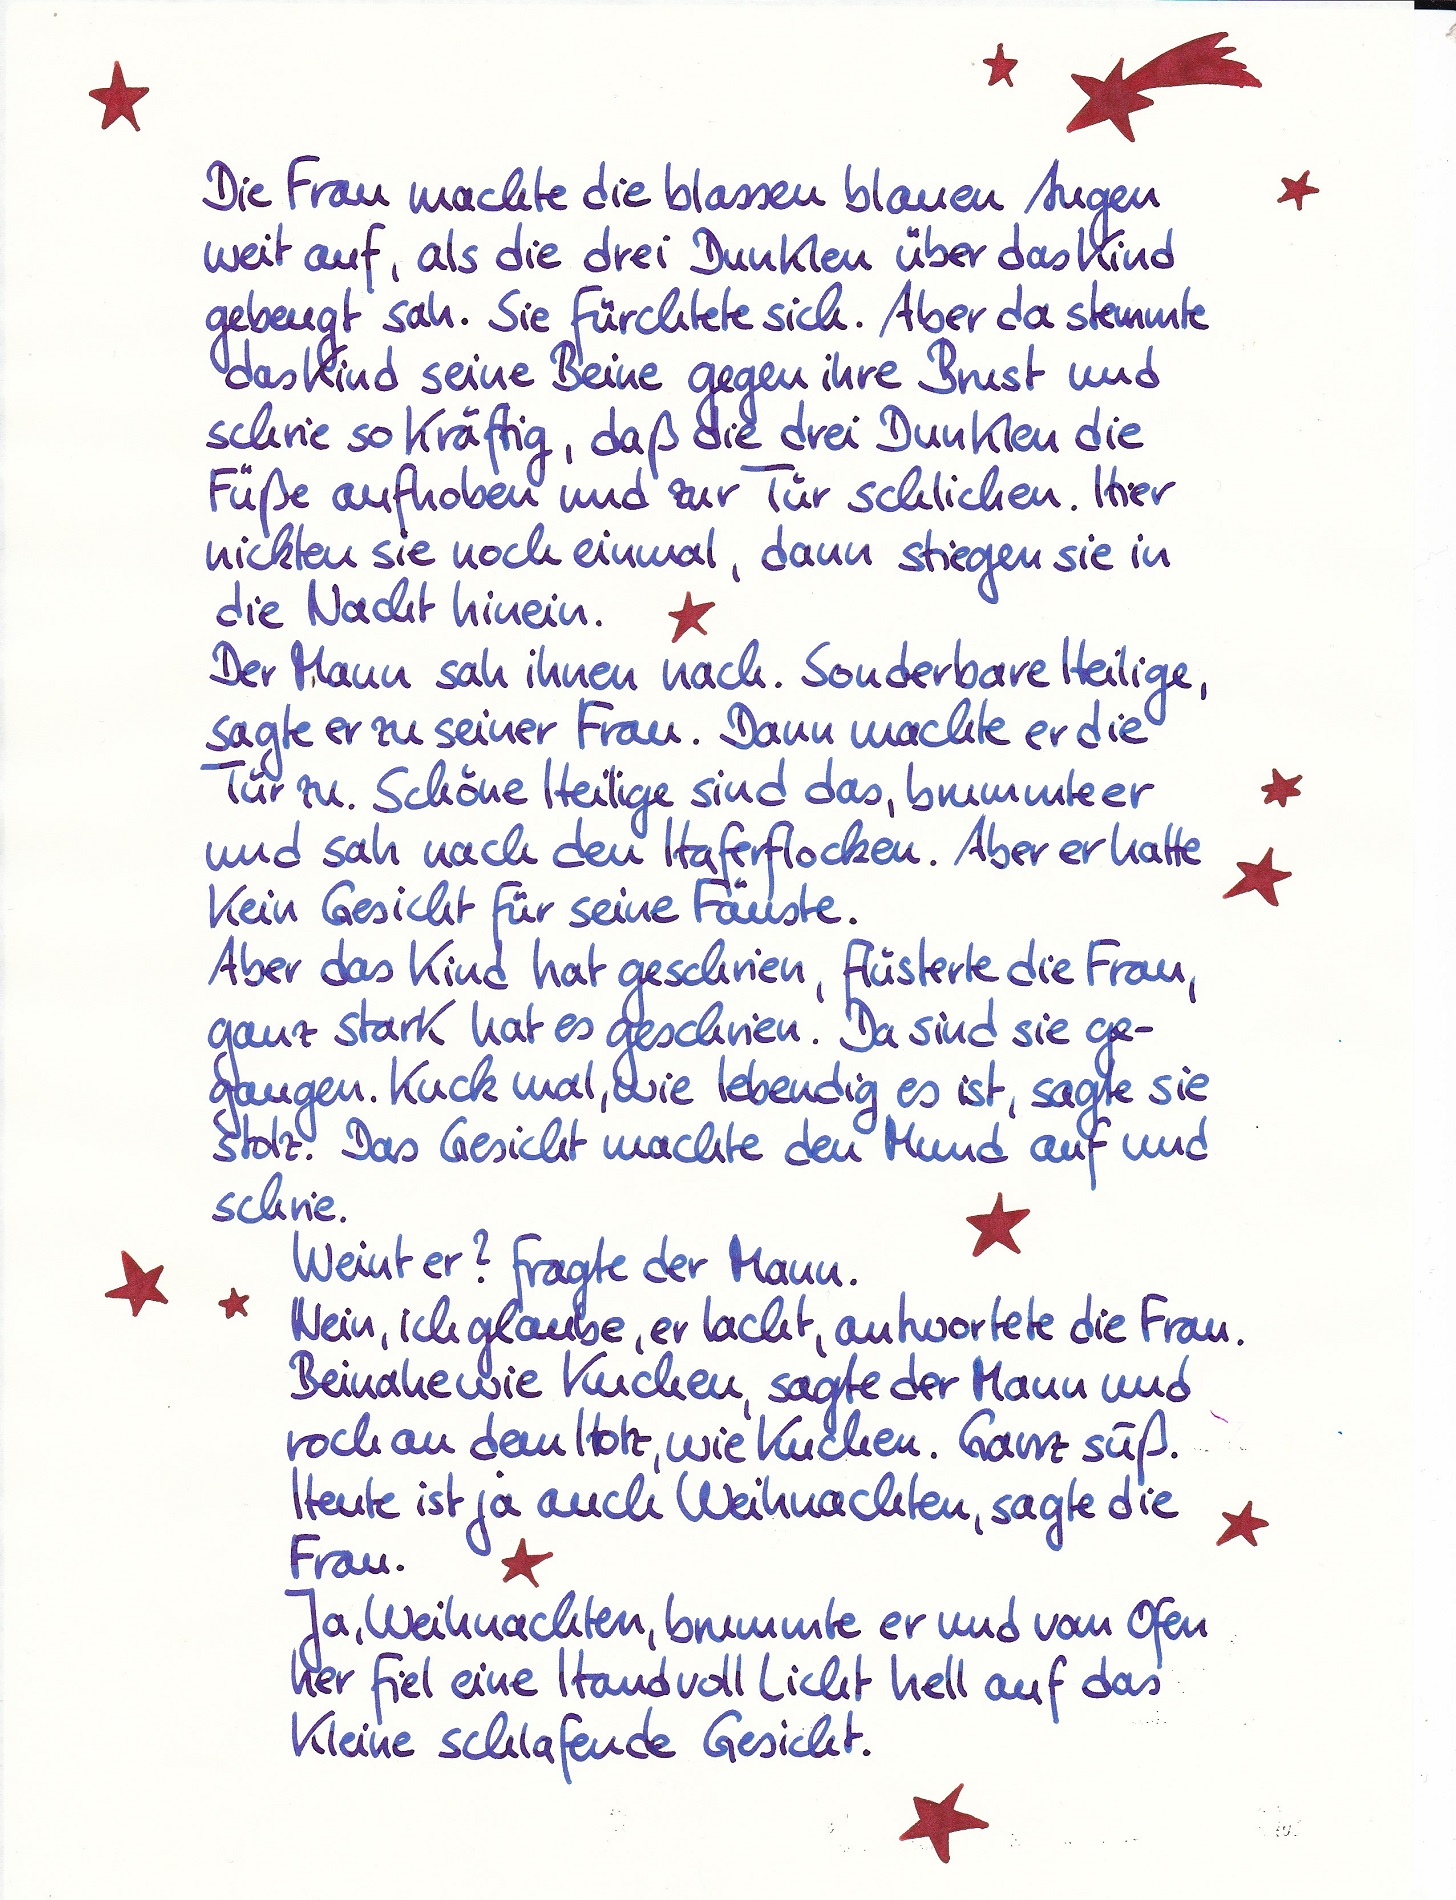 Die Frau machte die blassen blauen Augen
weit auf, als die drei Dunklen über das Kind
gebeugt sah. Sie fürchtete sich. Aber da stemmte
das Kind seine Beine gegen ihre Brust und
schrie so kräftig, daß die drei Dunklen die
Füße aufhoben und zur Tür schlichen. Hier
nickten sie noch einmal, dann stiegen sie in
die Nacht hinein.
Der Mann sah ihnen nach. Sonderbare Heilige,
sagte er zu seiner Frau. Dann machte er die
Tür zu. Schöne Heilige sind das, brummte er
und sah nach den Haferflocken. Aber er hatte
kein Gesicht für seine Fäuste.
Aber das Kind hat geschrien, flüsterte die Frau,
ganz stark hat es geschrien. Da sind sie ge-
gangen. Kuck mal, wie lebendig es ist, sagte sie
stolz. Das Gesicht machte den Mund auf und
schrie.
Weint er? fragte der Mann.
Nein, ich glaube, er lacht, antwortete die Frau.
Beinahe wie Kuchen, sagte der Mann und
roch an dem Holz, wie Kuchen. Ganz süß.
Heute ist ja auch Weihnachten, sagte die
Frau.
Ja, Weihnachten, brummte er und vom Ofen
her fiel eine Handvoll Licht hell auf das
kleine schlafende Gesicht.